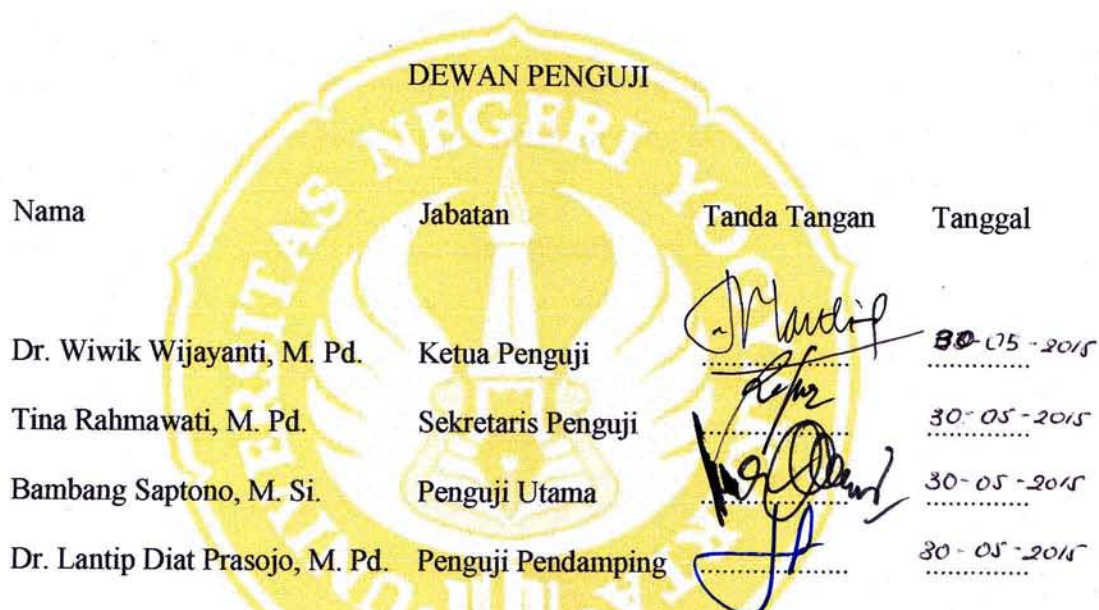 DEWAN PENGUJI
NEGERI
Nama Jabatan Tanda Tangan Tanggal
Dr. Wiwik Wijayanti, M. Pd. Ketua Penguji .................. 30-05-2015
Tina Rahmawati, M. Pd. Sekretaris Penguji .................. 30-05-2015
Bambang Saptono, M. Si. Penguji Utama .................. 30-05-2015
Dr. Lantip Diat Prasojo, M. Pd. Penguji Pendamping .................. 30-05-2015